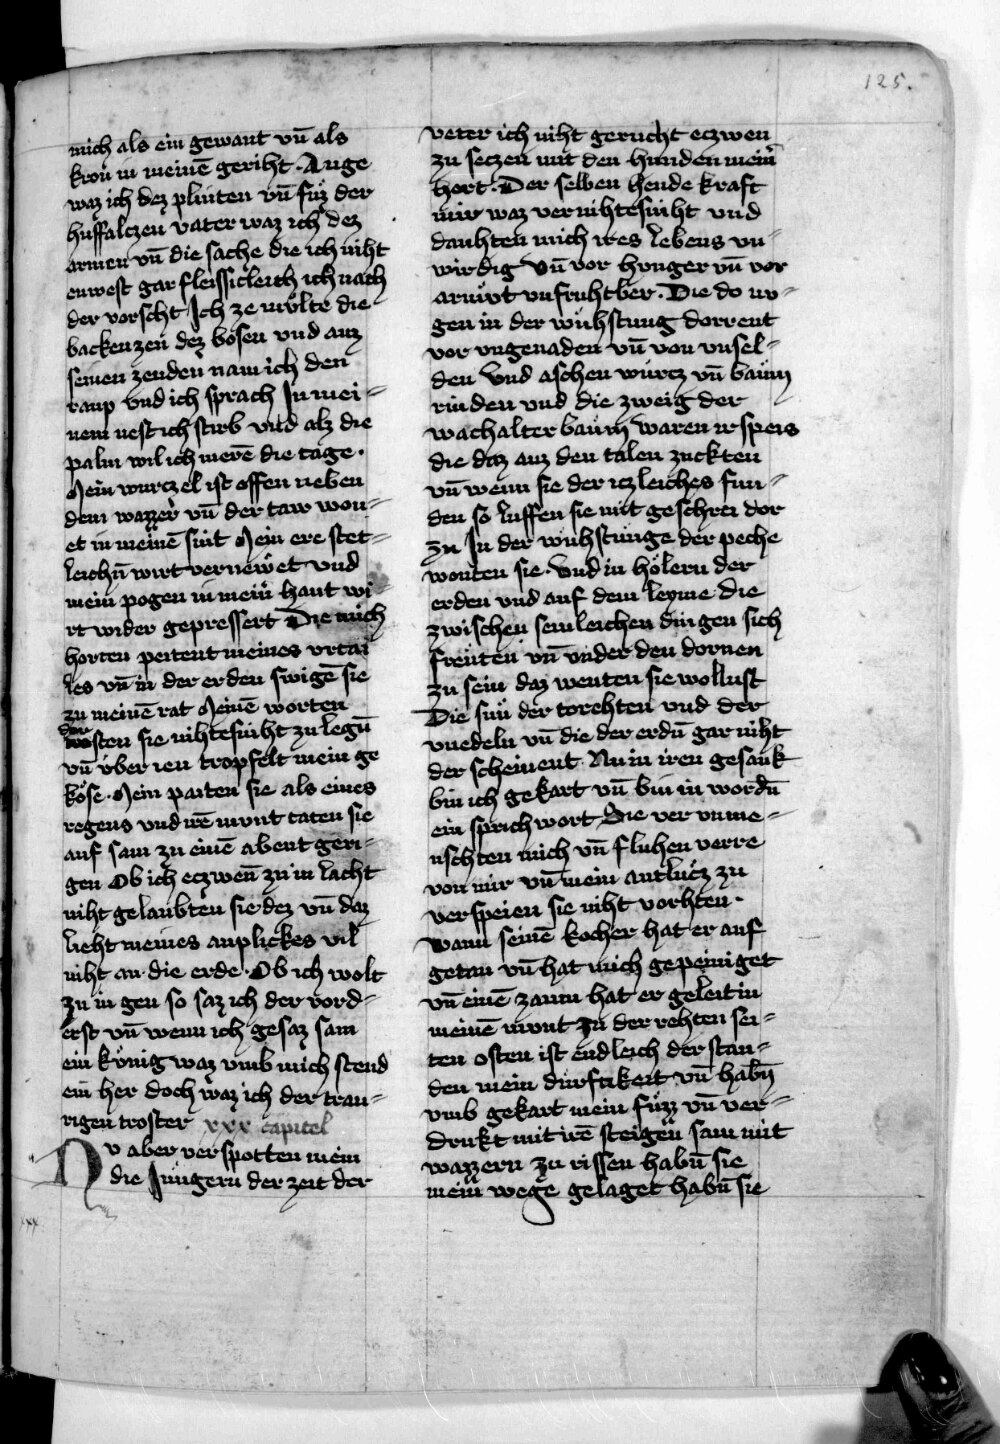 125.
mich als ein gewant vn̄ als
kron in meinē geriht · Auge
waz ich dez plinten vn̄ fuͤz der
huffalczen vater waz ich dez
armen vn̄ die sache die ich niht
enwest gar fleissicleich ich nach
der vorscht Ich ze muͤlte die
backenzen dez boͤsen vnd auz
seinen zenden nam ich den
raup vnd ich sprach In mei=
nem nest ich stirb vnd alz die
palm wil ich merē die tage ·
Mein wurczel ist offen neben
dem wazzer vn̄ der taw won=
et in meinē snit Mein ere stet=
leichn̄ wirt vernewet vnd
mein pogen in meiner hant wi
rt wider gepressert Die mich
horten peitent meines vrtai
les vn̄ in der erden swigē sie
zu meinē rat Meinē worten
dorsten sie nihtesniht zu legn̄
vn̄ uͤber ien tropfelt mein ge
koͤse · Mein paiten sie als eines
regens vnd irē munt taten sie
auf sam zu einē abent geri=
gen Ob ich eczwen̄ zu in lacht
niht gelaubten sie dez vn̄ daz
lieht meines anplickes vil
niht an die erde · Ob ich wolt
zu in gen so saz ich der vord=
erst vn̄ wenn ich gesaz sam
ein kuͤnig waz vmb mich stend
ein her doch waz ich der trau=
rigen troster xxx capitel
Nv aber verspotten mein
die Jungern der zeit der
xxx
veter ich niht gerucht eczwen
zu seczen mit den hunden meinr̄
hort · Der selben hende kraft
mir waz vernihtesniht vnd
dauhten mich ires lebens vn=
wirdig Vn̄ vor hunger vn̄ vor
armuͦt vnfruhtber · Die do nu=
gen in der wuͤhstung dorrent
vor vngenaden vn̄ von vnsel=
den vnd aschen wurcz vn̄ baum
rinden vnd die zweig der
wachalter baum waren ir speis
die daz auz den talen zuckten
vn̄ wenn sie der iczleiches fun=
den so luffen sie mit geschrei dor
zu In der wuͤhstunge der peche
wonten sie · Vnd in hoͤlern der
erden vnd auf dem leyme die
zwischen semleichen dingen sich
freuͤten vn̄ vnder den dornen
zu sein daz wenten sie wollust
Die suͤn der torehten vnd der
vnedeln vn̄ die der erdn̄ gar niht
der scheinent · Nu in iren gesank
bin ich gekart vn̄ bin in wordn̄
ein sprichwort Sie ver vnme=
nschten mich vn̄ fluhen verre
von mir vn̄ mein antlucz zu
verspeien sie niht vorhten ·
Wann seinē kocher hat er auf
getan vn̄ hat mich gepeiniget
vn̄ einē zaum hat er geleit in
meinē munt Zu der rehten sei=
ten osten ist endleich der stan=
den mein durftikeit vn̄ habn̄
vmb gekart mein fuͤzz vn̄ ver=
drukt mit irē steigen sam mit
wazzern zu rissen habn̄ sie
mein wege gelaget habn̄ sie